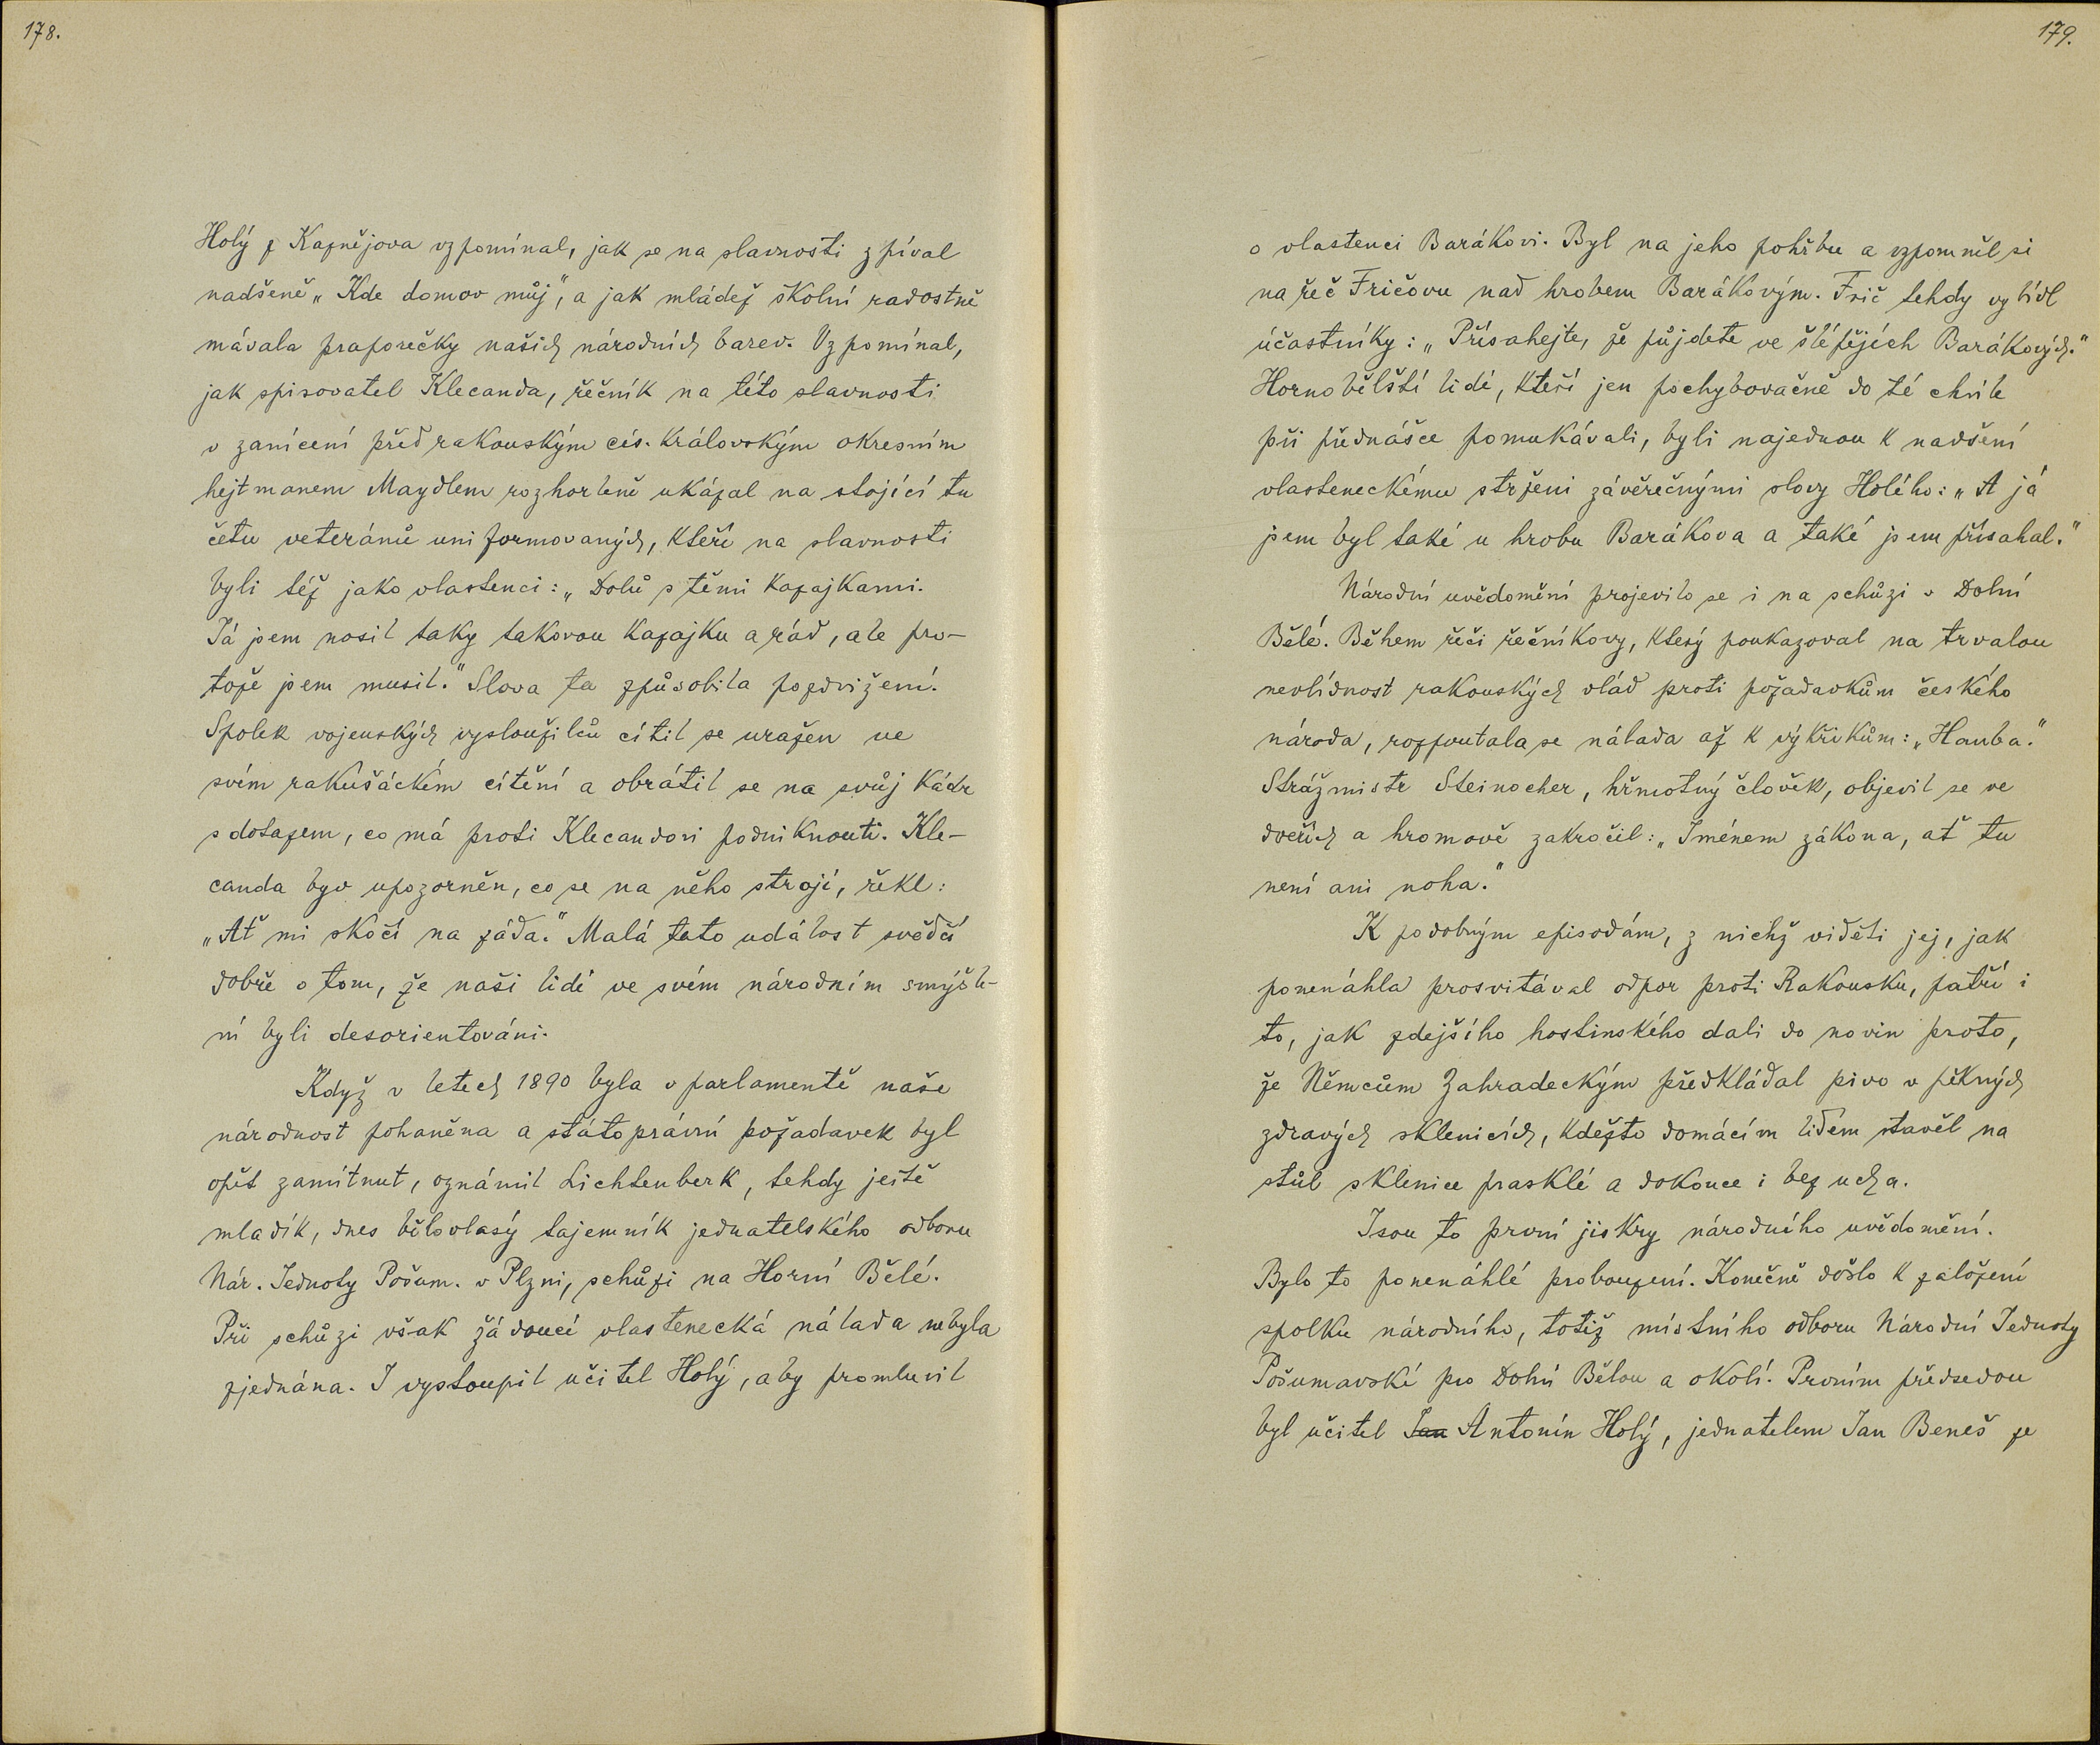 178.
Holý z Kaznějova vzpomínal, jak se na slavnosti zpíval
nadšeně „Kde domov můj“, a jak mládež školní radostně
mávala praporečky našich národních barev. Vzpomínal,
jak spisovatel Klecanda, řečník na této slavnosti
v zanícení před rakouským cís. královským okresním
hejtmanem Maydlem rozhorleně ukázal na stojící tu
četu veteránů uniformovaných, kteří na slavnosti
byli též jako vlastenci: „Dolů s těmi kazajkami.
Já jsem nosil taky takovou kazajku a rád, ale pro-
tože jsem musil.“ Slova ta způsobila pozdvižení.
Spolek vojenských vysloužilců cítil se uražen ve
svém rakušáckém cítění a obrátil se na svůj kádr
s dotazem, co má proti Klecandovi podniknouti. Kle-
canda byv upozorněn, co se na něho strojí, řekl:
„Ať mi skočí na záda.“ Malá tato událost svědčí
dobře o tom, že naši lidé ve svém národním smýšle-
ní byli desorientováni.
Když v letech 1890 byla v parlamentě naše
národnost pohaněna a státoprávní požadavek byl
opět zamítnut, oznámil Lichtenberk, tehdy ještě
mladík, dnes bělovlasý tajemník jednatelského odboru
Nár. Jednoty Pošum. v Plzni, schůzi na Horní Bělé.
Při schůzi však žádoucí vlastenecká nálada nebyla
zjednána. I vystoupil učitel Holý, aby promluvil
179.
o vlastenci Barákovi. Byl na jeho pohřbu a vzpomněl si
na řeč Fričovu nad hrobem Barákovým. Frič tehdy vybídl
účastníky: „Přísahejte, že půjdete ve šlépějích Barákových.“
Hornobělští lidé, kteří jen pochybovačně do té chvíle
při přednášce pomukávali, byli najednou k nadšení
vlasteneckému strženi závěrečnými slovy Holého: „A já
jsem byl také u hrobu Barákova a také jsem přísahal.“
Národní uvědomění projevilo se i na schůzi v Dolní
Bělé. Během řeči řečníkovy, který poukazoval na trvalou
nevlídnost rakouských vlád proti požadavkům českého
národa, rozpoutala se nálada až k výkřikům: „Hanba.“
Strážmistr Steinocher, hřmotný člověk, objevil se ve
dveřích a hromově zakročil: „Jménem zákona, ať tu
není ani noha.“
K podobným episodám, z nichž viděti jej, jak
ponenáhla prosvitával odpor proti Rakousku, patří i
to, jak zdejšího hostinského dali do novin proto,
že Němcům Zahradeckým předkládal pivo v pěkných
zdravých sklenicích, kdežto domácím lidem stavěl na
stůl sklenice prasklé a dokonce i bez ucha.
Jsou to první jiskry národního uvědomění.
Bylo to ponenáhlé probouzení. Konečně došlo k založení
spolku národního, totiž místního odboru Národní Jednoty
Pošumavské pro Dolní Bělou a okolí. Prvním předsedou
byl učitel Jan Antonín Holý, jednatelem Jan Beneš ze